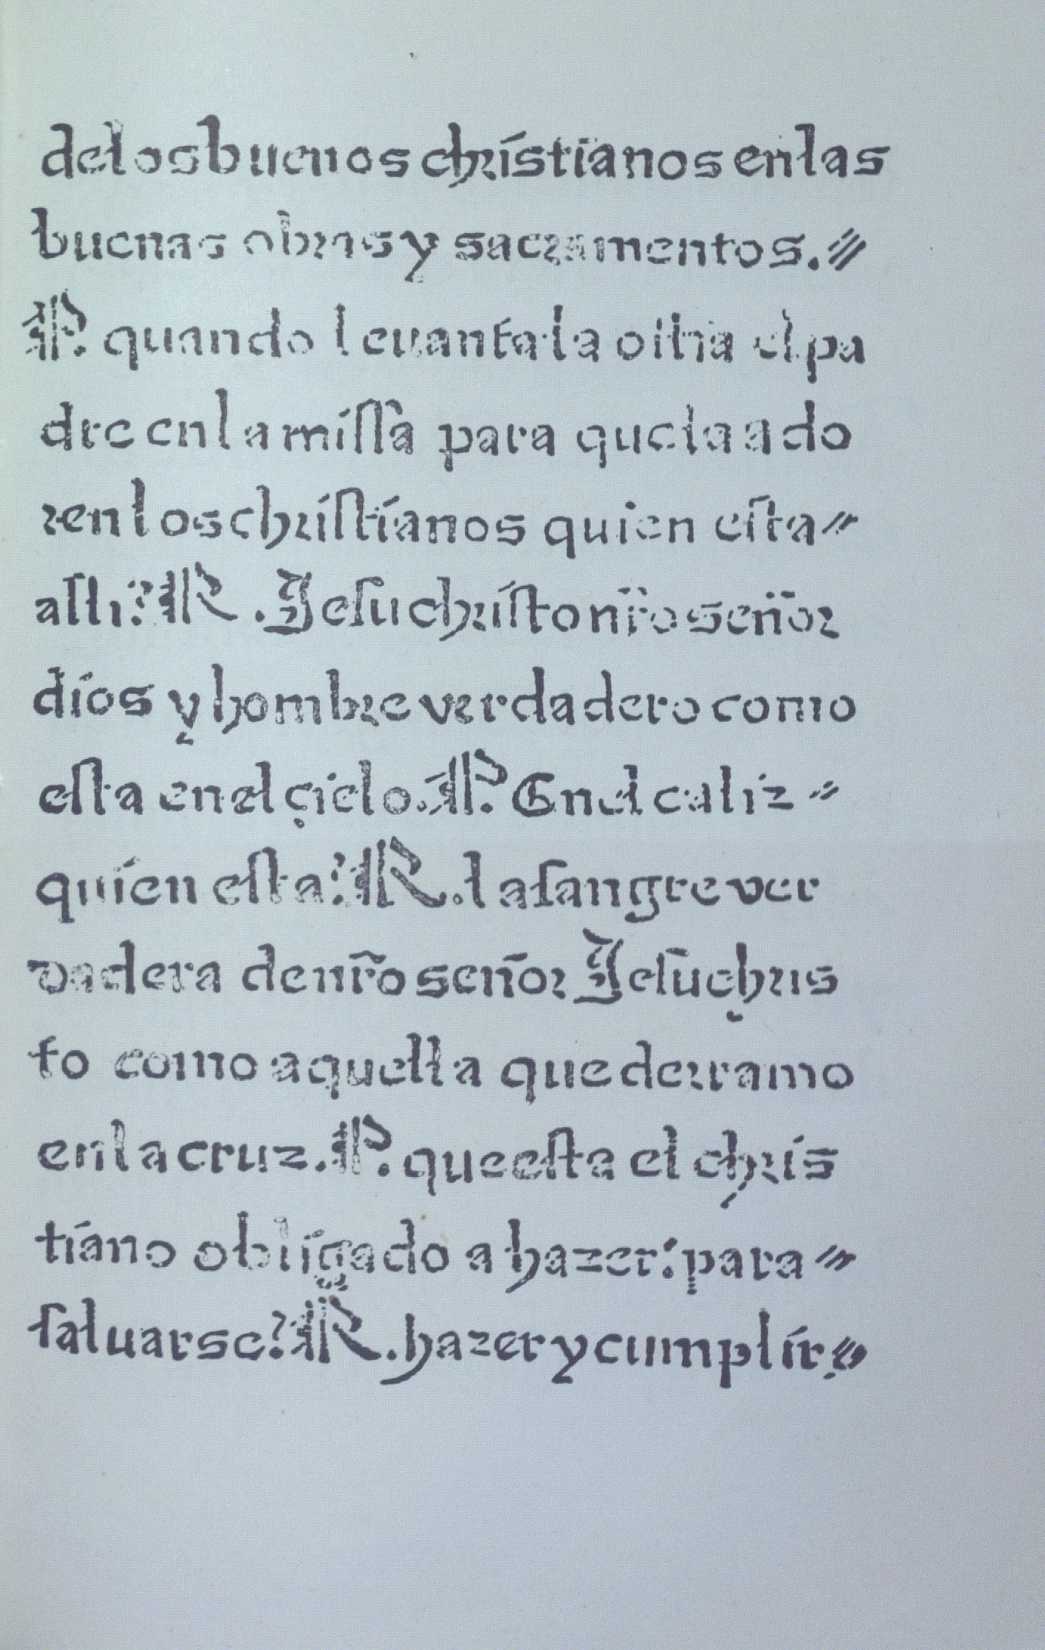 delos buenos christianos enlas
buenas obras y sacramentos.
P. quando leuanta la ostia el pa
dre en la missa para que la ado
ren los christianos quien esta
alli? R. Jesuchristo nr̃o señor
dios y hombre verdadero como
esta en el çielo. P. En el caliz
quien esta? R. la sangre ver
dadera de nr̃o señor Jesuchris
to como aquella que derramo
en la cruz. P. que esta el chris
tiano obligado a hazer: para
saluarse? R. hazer y cumplir